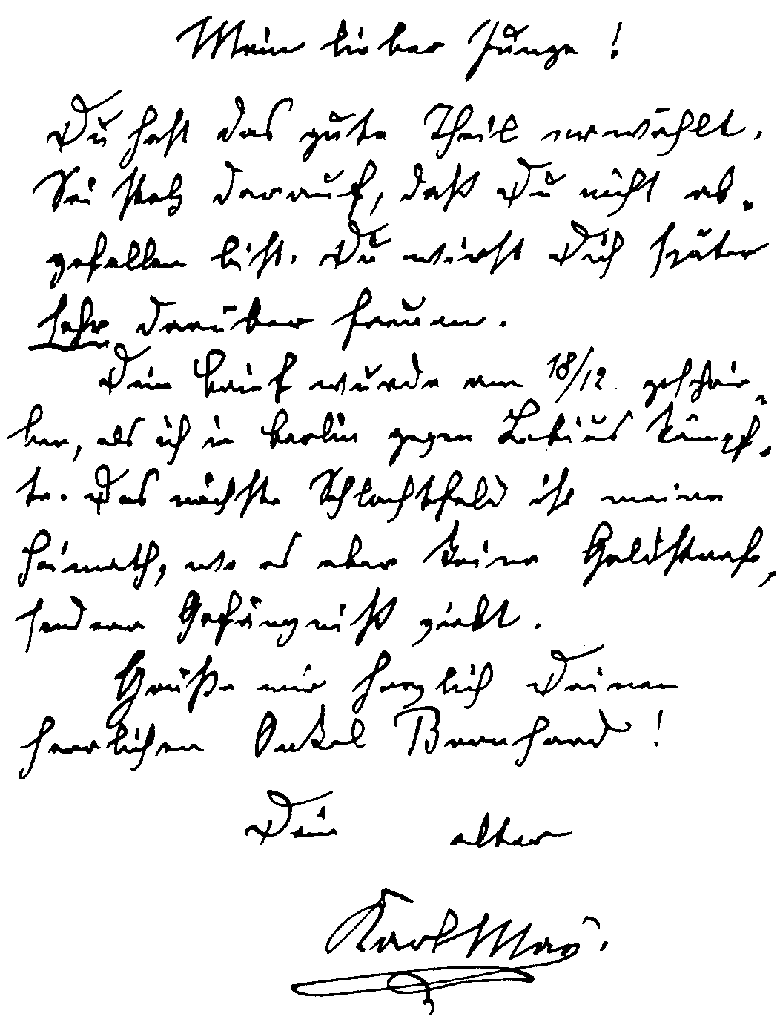 Mein lieber Junge!
Du hast das gute Theil erwählt.
Sei stolz darauf, daß Du nicht ab-
gefallen bist. Du wirst Dich später
sehr darüber freuen.
Dein Brief wurde am 18/12 geschrie-
ben, als ich in Berlin gegen Lebius kämpf-
te. Das nächste Schlachtfeld ist meine
Heimath, wo es aber keine Geldstrafe,
sondern Gefängniß giebt.
Grüße mir herzlich Deinen
herrlichen Onkel Bernhard!
Dein alter
Karl May.